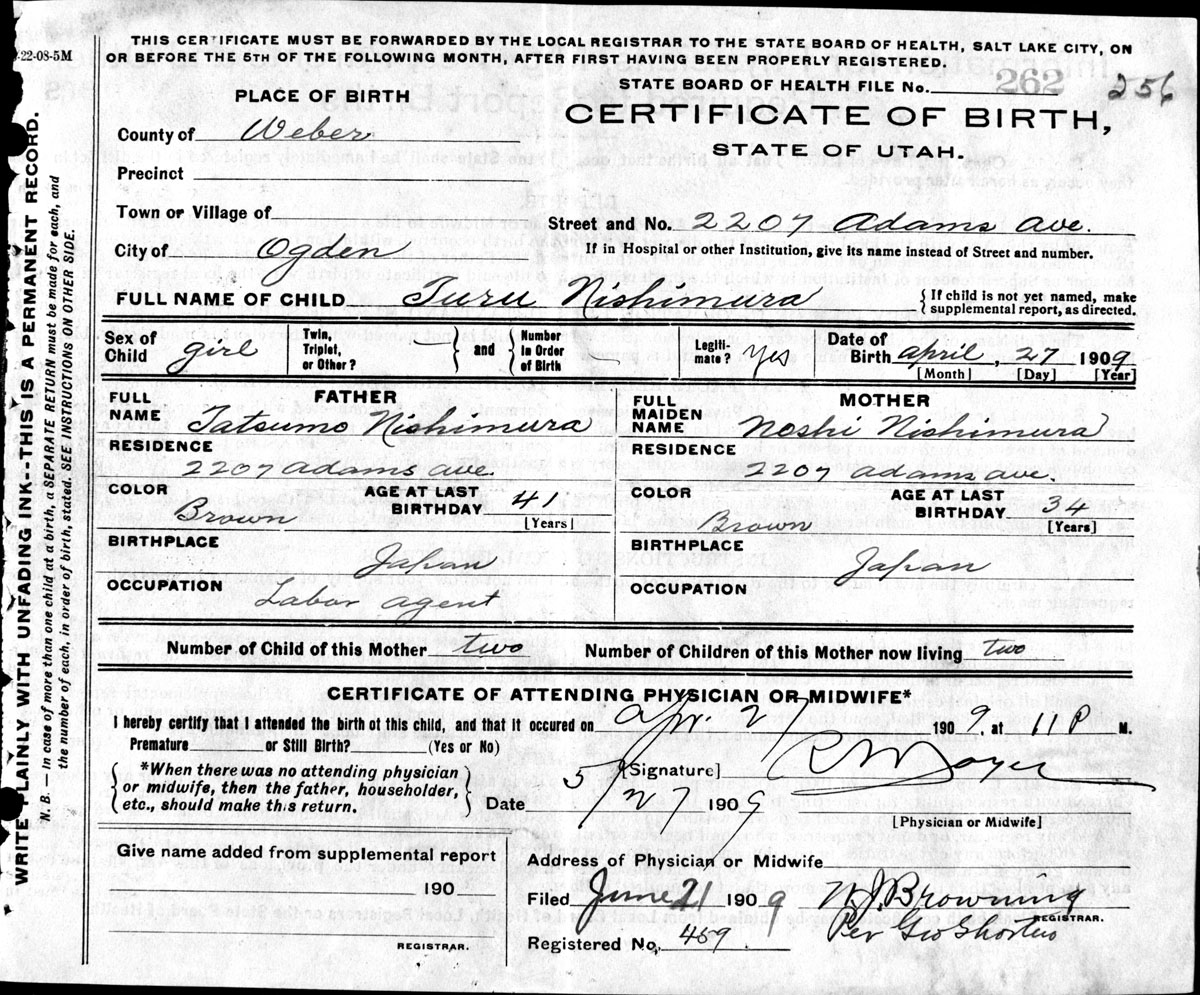 22-08-5M
THIS CERTIFICATE MUST BE FORWARDED BY THE LOCAL REGISTRAR TO THE STATE BOARD OF HEALTH, SALT LAKE CITY, ON
OR BEFORE THE 5TH OF THE FOLLOWING MONTH, AFTER FIRST HAVING BEEN PROPERLY REGISTERED.
STATE BOARD OF HEALTH FILE No. 262 256
PLACE OF BIRTH
CERTIFICATE OF BIRTH,
STATE OF UTAH.
County of Weber
Precinct
Town or Village of
Street and No. 2207 Adams Ave.
City of Ogden
If in Hospital or other Institution, give its name instead of Street and number.
FULL NAME OF CHILD Turu Nishimura
{ If child is not yet named, make
supplemental report, as directed.
Sex of Child girl
Twin, Triplet, or Other? } and { Number in Order of Birth
Legiti-mate? Yes
Date of Birth April, 27 1909
[Month] [Day] [Year]
FATHER
FULL NAME Tatsumo Nishimura
RESIDENCE
2207 Adams Ave.
COLOR Brown
AGE AT LAST BIRTHDAY 41
[Years]
BIRTHPLACE
Japan
OCCUPATION
Labor agent
MOTHER
FULL MAIDEN NAME Noshi Nishimura
RESIDENCE
2207 Adams ave.
COLOR Brown
AGE AT LAST BIRTHDAY 34
[Years]
BIRTHPLACE
Japan
OCCUPATION
Number of Child of this Mother two Number of Children of this Mother now living two
CERTIFICATE OF ATTENDING PHYSICIAN OR MIDWIFE*
I hereby certify that I attended the birth of this child, and that it occured on Apr. 27 1909, at 11 P M.
Premature or Still Birth? (Yes or No)
{ *When there was no attending physician
or midwife, then the father, householder,
etc., should make this return. }
[Signature]
Date 5/27 1909
[Physician or Midwife]
Give name added from supplemental report
190
REGISTRAR.
Address of Physician or Midwife
Filed June 21 1909 Browning
REGISTRAR.
Per Geo
Registered No. 459
WRITE PLAINLY WITH UNFADING INK--THIS IS A PERMANENT RECORD.
N. B. — In case of more than one child at a birth, a SEPARATE RETURN must be made for each, and
the number of each, in order of birth, stated. SEE INSTRUCTIONS ON OTHER SIDE.